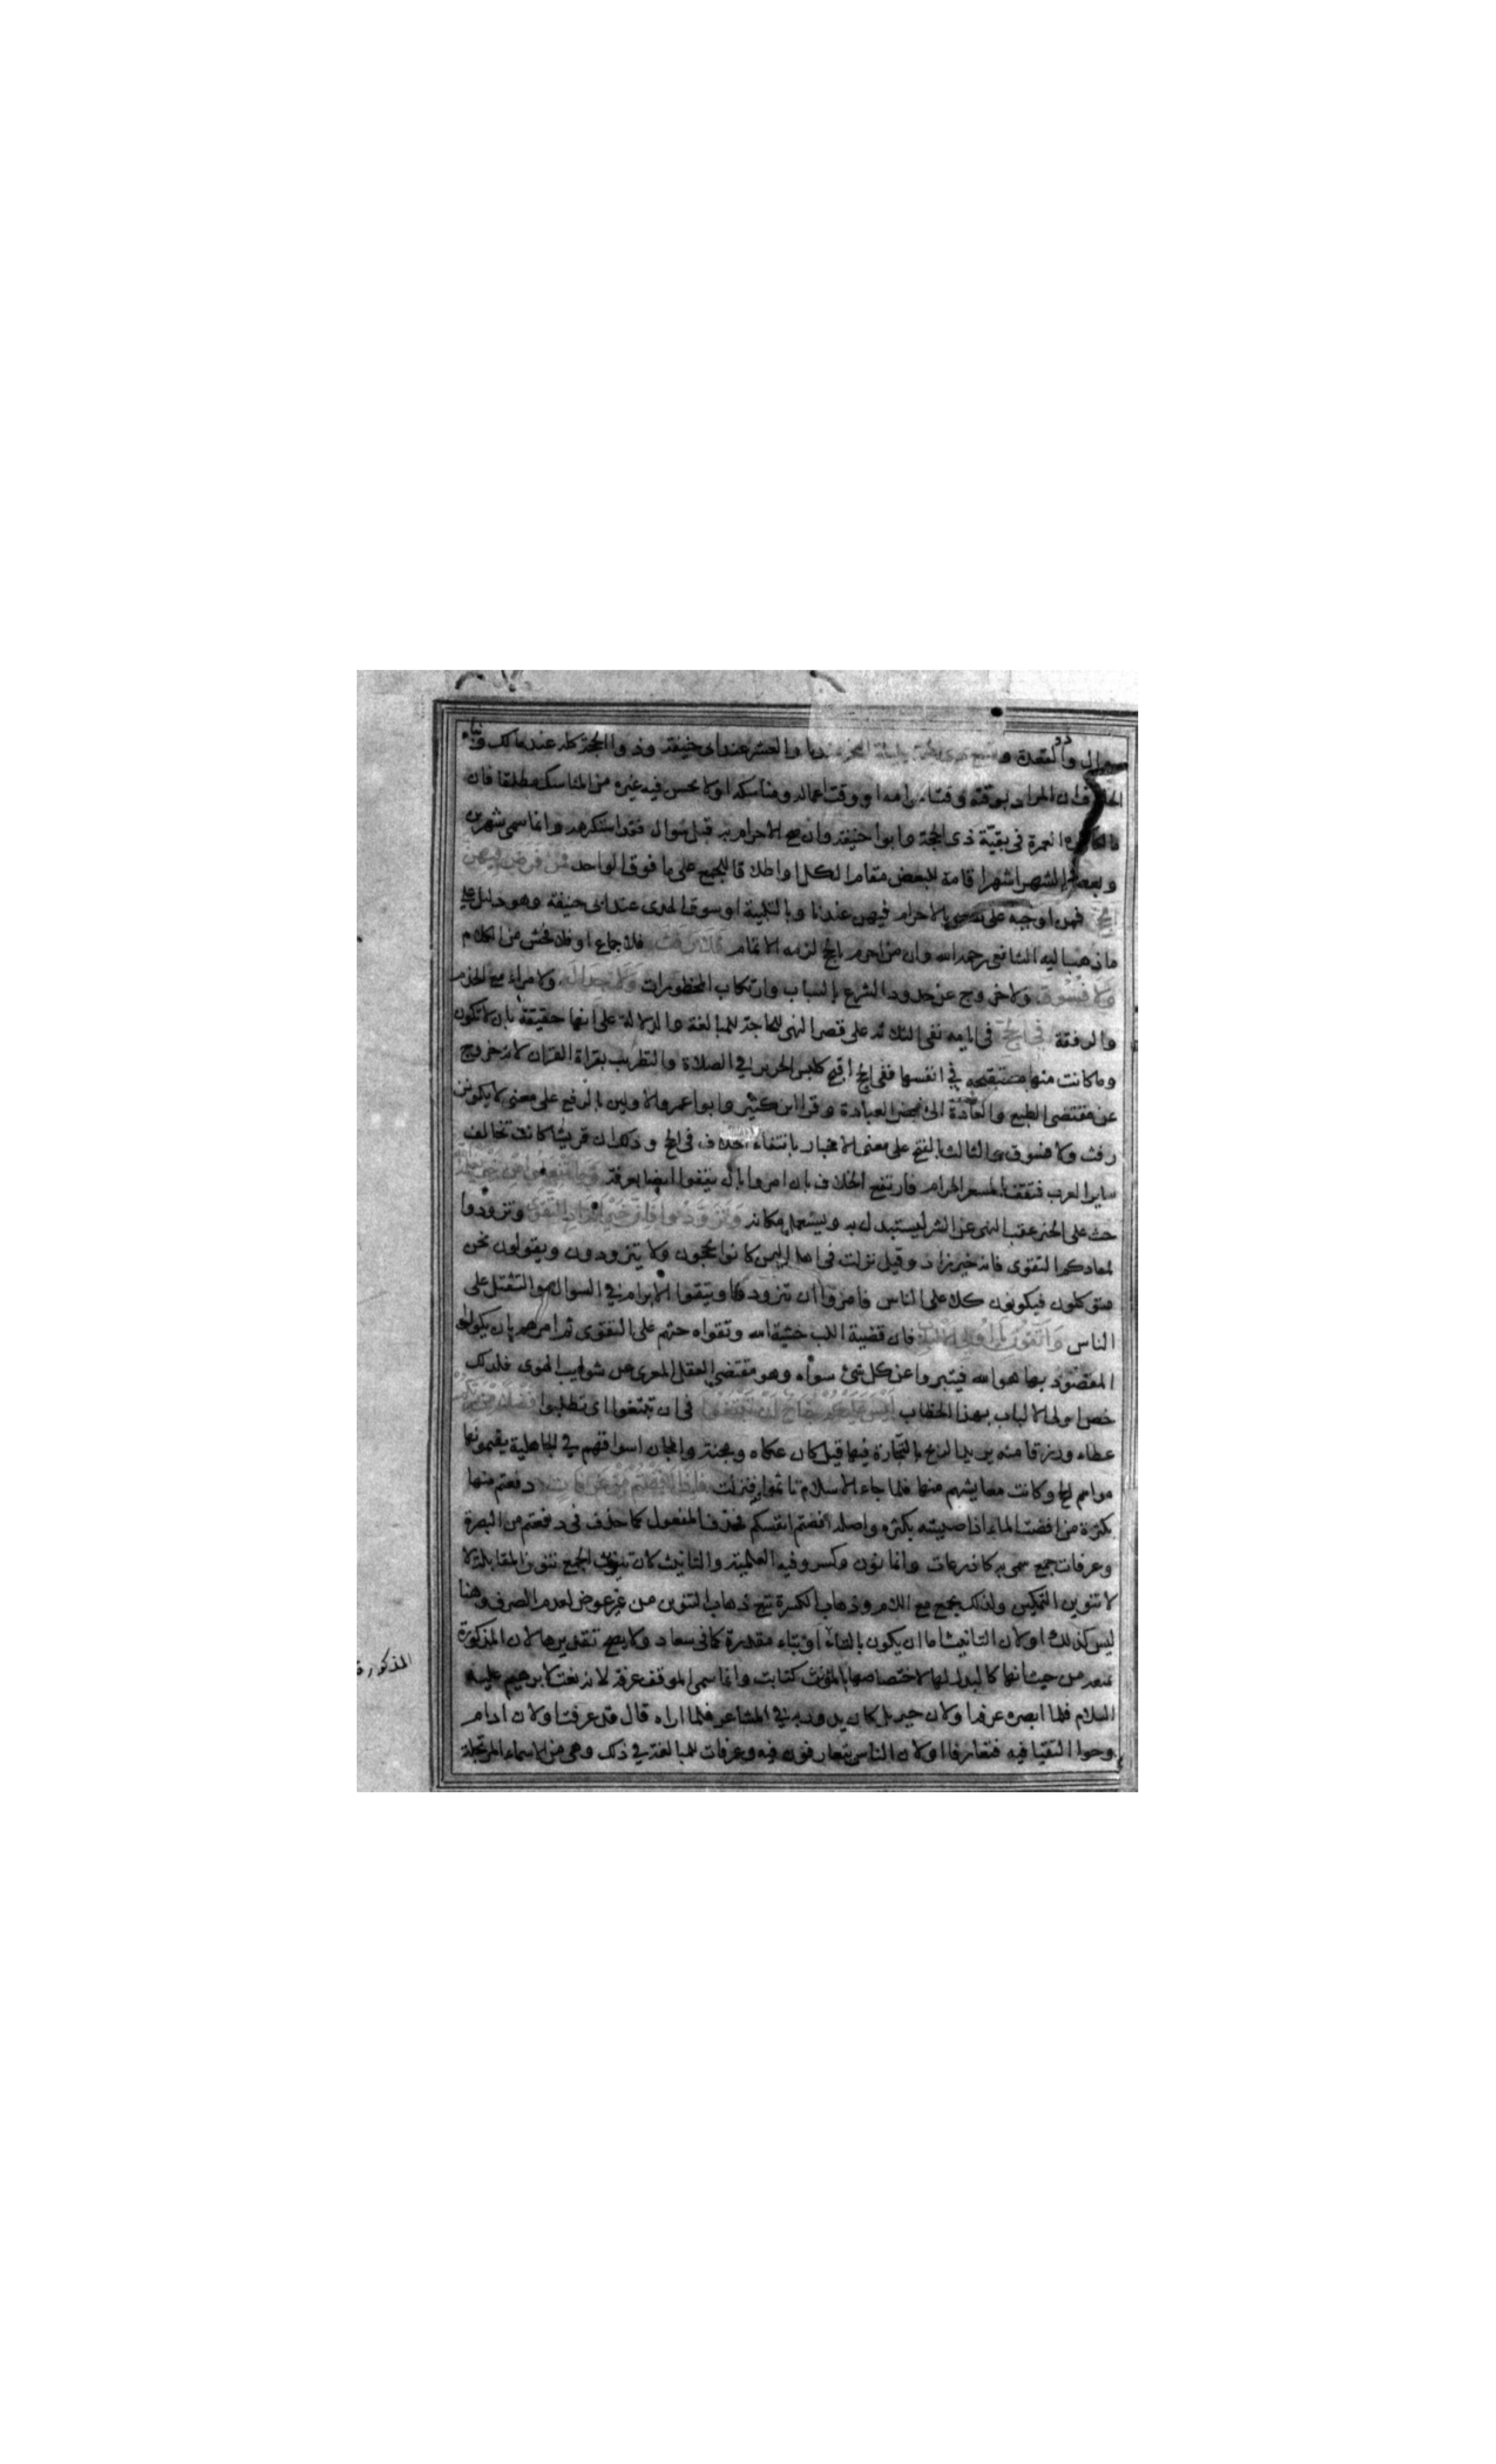 شوال وذو القعدة وتسع ذى الحجة بليلة النحر عندنا والعشر عند ابى حنيفة وذوا الحجة كله عند مالك وبناء
الخلاف ان المراد بوقته وقت احرامه او وقت اعماله ومناسكه او لا يحسن فيه غيره من المناسك مطلقا فان
مالكا كره العمرة فى بقيّة ذى الحجة وابوا حنيفة وان صح الاحرام به قبل شوال فقد استكرهه وانما سمى شهرين
وبعض الشهر اشهرا اقامة للبعض مقام الكل او اطلاقا للجمع على ما فوق الواحد فمن فرض فيهن
الحج فمن اوجبه على نفسه بالاحرام فيهن عندنا وبالتلبية او سوق الهدى عند ابى حنيفة وهو دليل على
ما ذهب اليه الشافعى رحمه الله وان من احرم بالحج لزمه الاتمام فَلَا رَفَثَ فلا جماع او فلا فحش من الكلام
وَلَا فُسُوقَ ولا خروج عن حدود الشرع بالسباب وارتكاب المحظورات وَلَا جِدَالَ ولا مراء مع الخدم
والرفقة فِي الحَجِّ فى ايامه نفى الثلاثة على قصد النهى للمبالغة والدلالة على انها حقيقة بان لا تكون
وما كانت منها مستقبحه في انفسها ففى الحج أقبح كلبس الحرير في الصلاة والتطريب بقراة القران لانه خروج
عن مقتضى الطبع والعادة الى محض العبادة وقرا ابن كثير وابوا عمرو الاولين بالرفع على معنى لا يكونن
رفث ولا فسوق والثالث بالفتح على معنى الاخبار بانتفاء الخلاف فى الحج وذلك ان قريشا كانت تخالف
ساير العرب فتقف بالمشعر الحرام فارتفع الخلاف بان امروا بان يقفوا ايضا بعرفة وما تفعلوا من خير يعلمه الله
حث على الخير عقب النهى عن الشر ليستبدل به ويستعمل مكانه وَتَزَوَّدُوا فَاِنَّ خَيْرَ الزَّادِ التَّقْوَى وتزودوا
لمعادكم التقوى فانه خير زاد وقيل نزلت فى اهل اليمن كانوا يحجون ولا يتزودون ويقولون نحن
متوكلون فيكونون كلا على الناس فامروا ان يتزودوا ويتقوا الابرام في السوال والتثقيل على
الناس وَاتَّقُونِ يَا اُولِى الاَلْبَابِ فان قضية اللب خشية الله وتقواه حثهم على التقوى ثم امرهم بان يكون
المقصود بها هو الله فيتبروا عن كل شئ سواه وهو مقتضى العقل المعرى عن شوايب الهوى فلذلك
خص اولى الالباب بهذا الخطاب لَيْسَ عَلَيْكُمْ جُنَاحٌ اَنْ تَبْتَغُوا فى ان تبتغوا اى تطلبوا فَضْلًا مِنْ رَبِّكُمْ
عطاء ورزقا منه يريد الربح بالتجارة فيها قيل كان عكاه ومجنة والمجاز اسواقهم في الجاهلية يقيمونها
مواسم الحج وكانت معايشهم منها فلما جاء الاسلام تاثموا فنزلت فَاِذَا اَفَضْتُمْ مِنْ عَرَفَاتٍ دفعتم منها
بكثرة من افضت الماء اذا صببته بكثرة واصله افضتم انفسكم فحذف المفعول كما حذف فى دفعتم من البصرة
وعرفات جمع سمى به كاذرعات وانما نون وكسر وفيه العلمية والتانيث لان تنوين الجمع تنوين المقابلة لا
لا تنوين التمكين ولذلك يجمع مع اللام وذهاب الكسرة تبع ذهاب التنوين من غير عوض لعدم الصرف وهنا
ليس كذلك او لان التانيث اما ان يكون بالتاء او بتاء مقدرة كما فى سعاد ولا يصح تقديرها لان المذكورة
تمنعه من حيث انها كالبدل لها لاختصاصها بالمؤنث كتاء بنت وانما سمى الموقف عرفة لانه نعت لابرهيم عليه
السلام فلما ابصره عرفه او لان جبريل كان يدور به في المشاعر فلما اراه قال قد عرفت او لان ادام
وحوا التقيا فيه فتعارفا او لان الناس يتعارفون فيه وعرفات للمبالغة في ذلك وهى من الاسماء المرتجلة
المذكورة